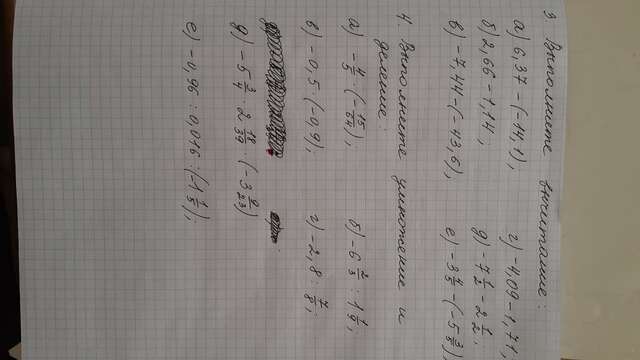 3 Выполните вычитание:
а) 6,37 - (-14,1); г) -4,09 - 1,71;
б) 2,66 - 1,14; д) -7 1/2 - 2 1/2;
в) -7,44 - (-43,6); е) -3 4/7 - (-5 3/7);
4. Выполните умножение и
деление:
а) -4/5 · (-15/64); б) -6 2/3 : 1 1/9;
в) -0,5 · (-0,9); г) -2,8 : 7/8;
д) -5 3/4 : 2 18/39 (-3 9/23)
е) -0,96 : 0,016 : (-1 1/5);